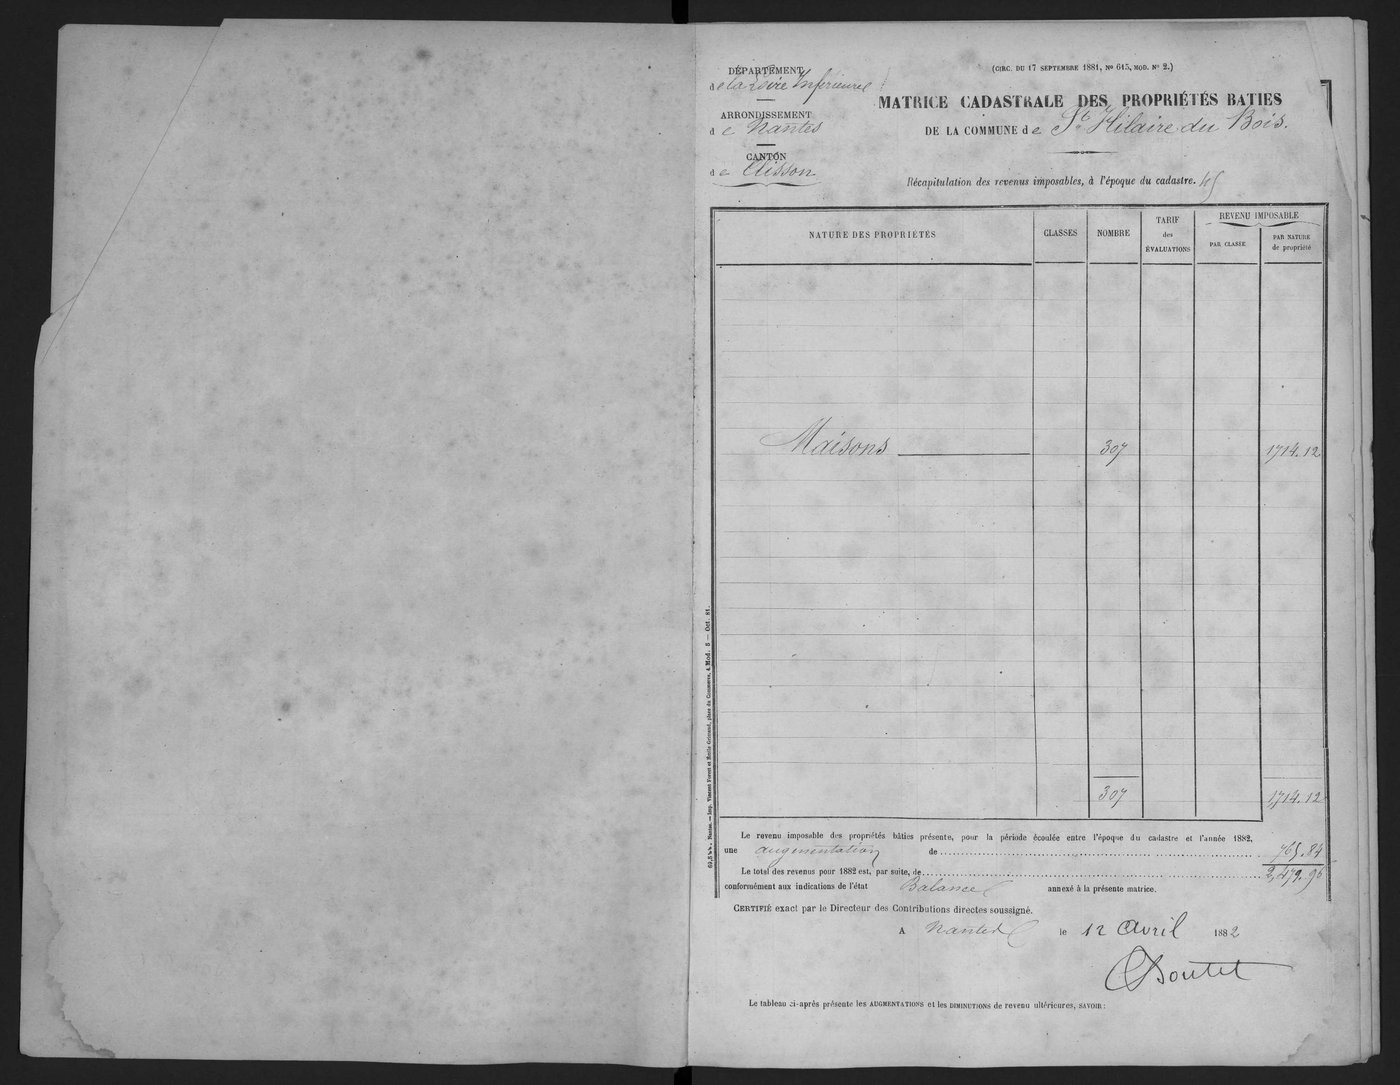 DÉPARTEMENT
de la Loire Inférieure
ARRONDISSEMENT
de Nantes
CANTON
de Clisson
(CIRC. DU 17 SEPTEMBRE 1881, No 615, MOD. No 2.)
MATRICE CADASTRALE DES PROPRIÉTÉS BATIES
DE LA COMMUNE de St Hilaire du Bois.
Récapitulation des revenus imposables, à l'époque du cadastre.
NATURE DES PROPRIÉTÉS
CLASSES
NOMBRE
TARIF
des
ÉVALUATIONS
REVENU IMPOSABLE
PAR CLASSE
PAR NATURE
de propriété
Maisons 307 1714.12
307 1,714.12
Le revenu imposable des propriétés bâties présente, pour la période écoulée entre l'époque du cadastre et l'année 1882,
une augmentation de 765.84
Le total des revenus pour 1882 est, par suite, de 2,479.96
conformément aux indications de l'état Balance annexé à la présente matrice.
CERTIFIÉ exact par le Directeur des Contributions directes soussigné.
A Nantes le 12 Avril 1882
Le tableau ci-après présente les AUGMENTATIONS et les DIMINUTIONS de revenu ultérieures, SAVOIR :
Nantes. — Imp. Vincent Forest et Emile Grimaud, place du Commerce, 4. Mod. 8 — Oct. 81.